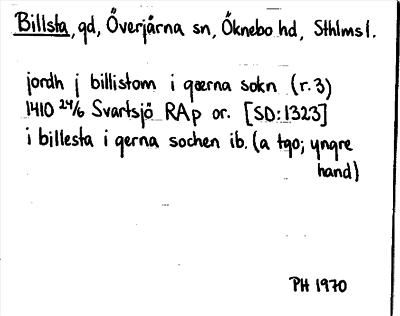 Billsta, gd, Överjärna sn, Öknebo hd, Sthlms l.
jordh j billistom i gærna sokn (r. 3)
1410 24/6 Svartsjö RAp or. [SD:1323]
i billesta i gerna sochen ib. (a tgo; yngre
hand)
PH 1970